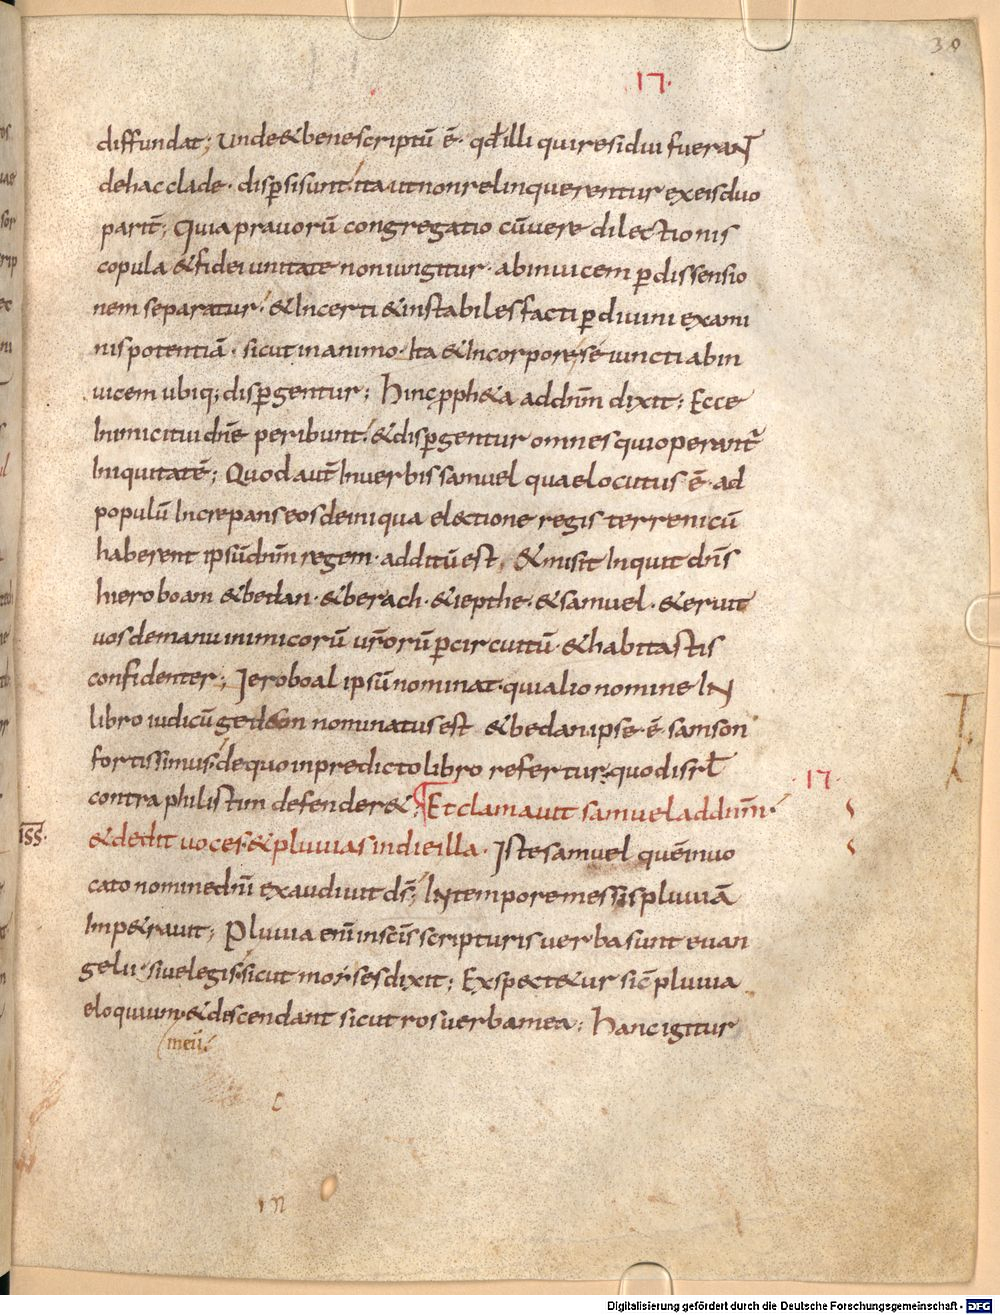 30
17.
diffundat; unde & bene scriptū ē. qđ illi qui residui fuerant
de hac clade. disp̄si sunt. ita ut non relinquerentur ex eis duo
parit̄; Quia prauorū congregatio cū uere dilectionis
copula & fidei unitate non iungitur. ab inuicem p̄ dissensio
nem separatur. & Incerti & instabiles facti p̄ diuini exami
nis potentiā. sicut in animo. Ita & In corpore se iuncti ab in
uicem ubiq; disp̄gentur; Hinc p̄ph&a ad dnm̄ dixit; Ecce
Inimici tui dnē peribunt. & disp̄gentur omnes qui operant̄
Iniquitatē; Quod aut̄ In uerbis samuel quae locutus ē. ad
populū Increpans eos de iniqua electione regis terreni cū
haberent ipsū dnm̄ regem. additū est. & misit Inquit dns̄
hieroboam & bedan. & berach. & iepthe. & samuel. & eruit
uos de manu inimicorū ur̄orū p̄ circuitū. & habitastis
confidenter; Ieroboal ipsū nominat. qui alio nomine IN
libro iudicū gedeon nominatus est & bedan ipse. ē samson
fortissimus. de quo in predicto libro refertur. quod isrl̄
contra philistim defender&; Et clamauit samuel ad dnm̄.
17.
& dedit uoces. & pluuias in die illa. Iste samuel quē inuo
iss̄.
cato nomine dnī exaudiuit ds̄; IN tempore messis pluuiā
Imp&rauit; Pluuia enī in scīs scripturis uerba sunt euan
gelii. siue legis. sicut moyses dixit; Exspect&ur sic̄ pluuia
eloquium. & descendant sicut ros uerba mea; Hanc igitur
meū.